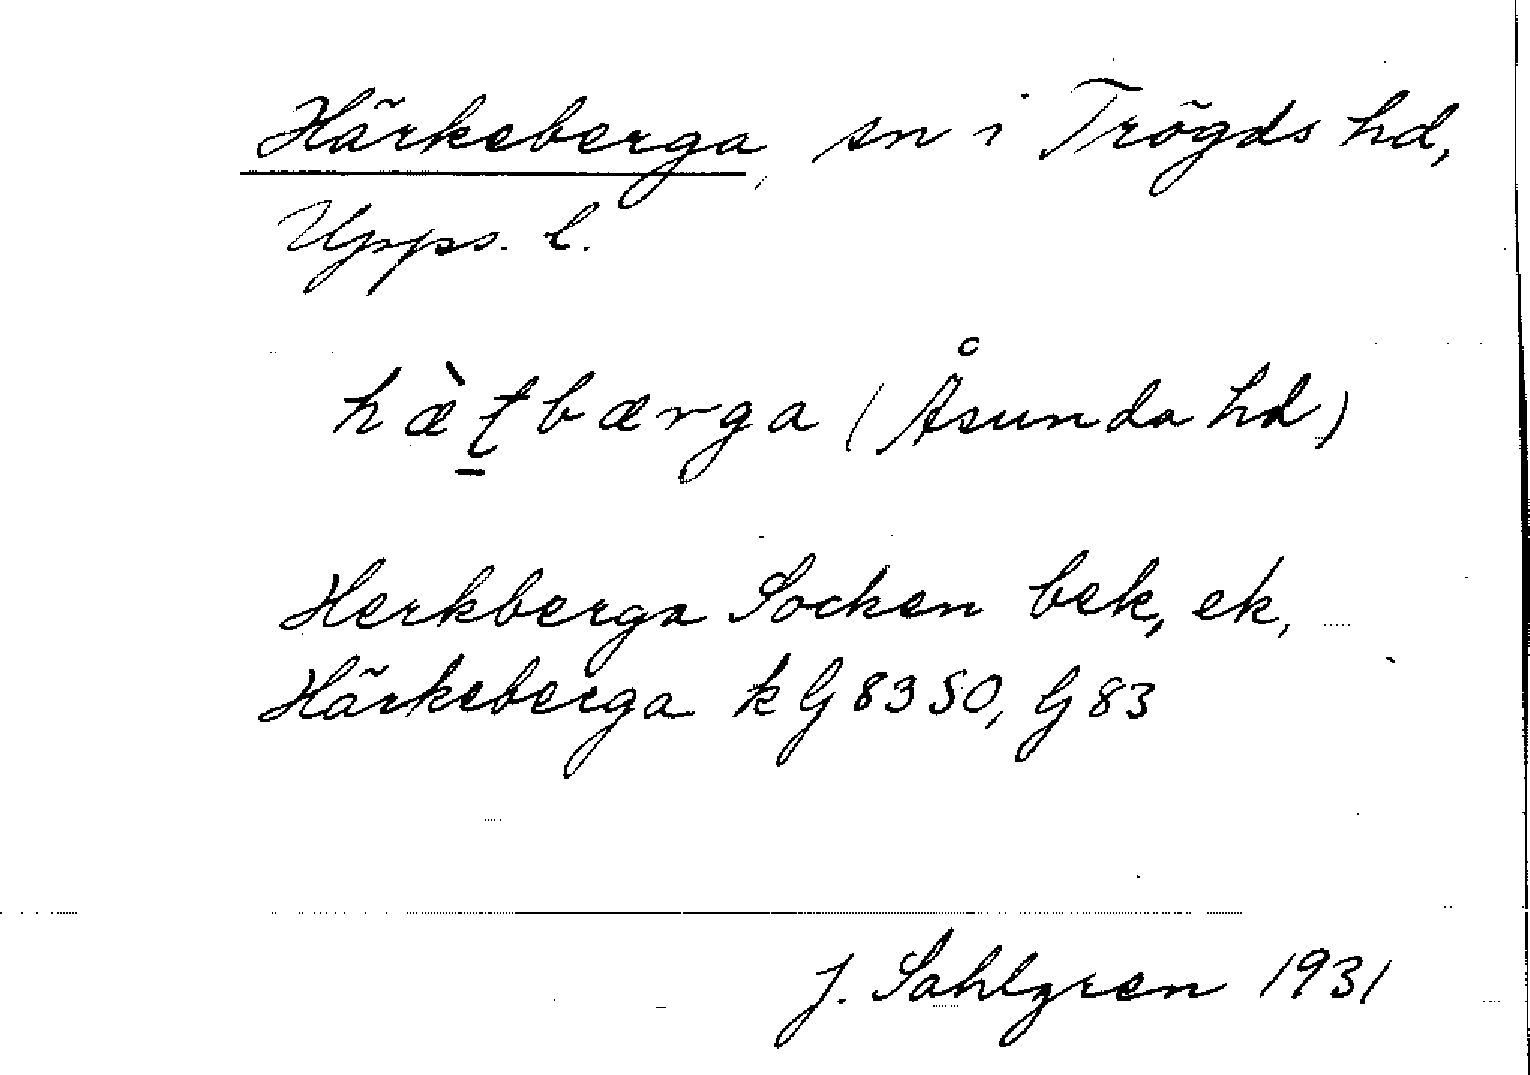 Härkeberga, sn i Trögds hd,
Upps. l.
hæ̀ṯbærga (Åsunda hd)
Herkberga Socken bek, ek,
Härkeberga k G 83 SO, G 83
J. Sahlgren 1931